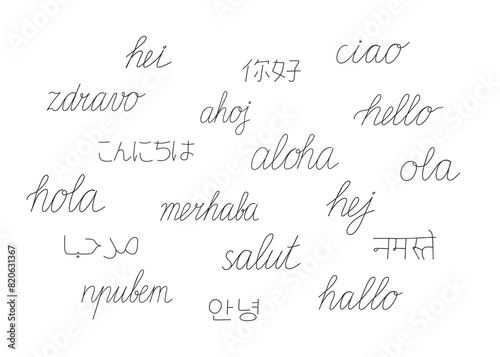 hei
你好
ciao
zdravo
ahoj
hello
こんにちは
aloha
ola
hola
merhaba
hej
مرحبا
salut
नमस्ते
привет
안녕
hallo
Adobe Stock | #820631367
Adobe Stock